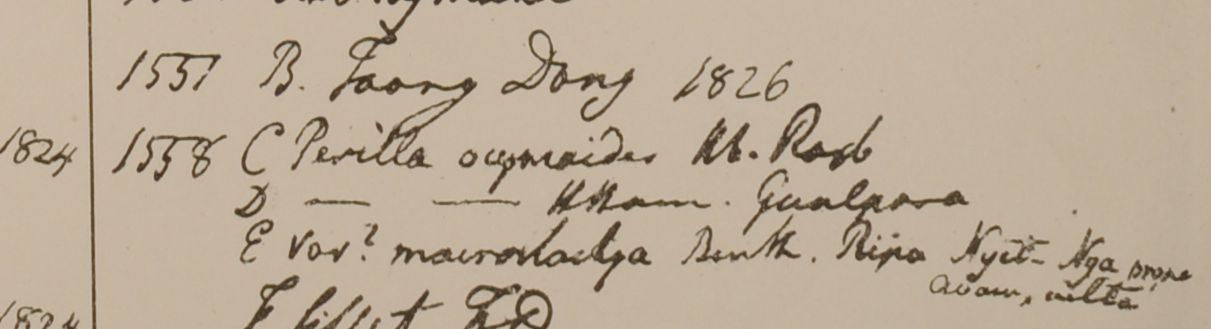 1551 B. Taong Dong 1826
1824 1558 C Perilla ocymoides Hb. Roxb
D — — HHam. Gualpara
E var? macrostachya Benth. Ripa Nyet-Nga prope
avam, culta
1824